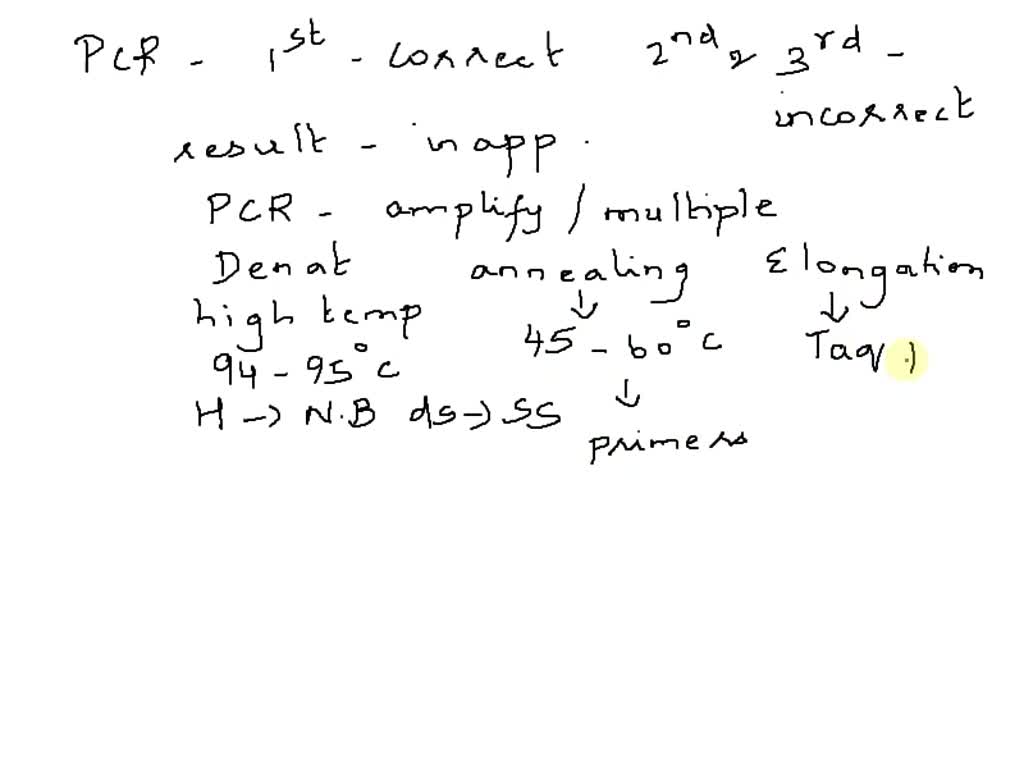 PCR - 1st - correct 2nd & 3rd - incorrect
result - inapp.
PCR - amplify / multiple
Denat annealing Elongation
high temp ↓ ↓
94 - 95°C 45 - 60°C Taq
H → N.B ds → ss ↓
primers